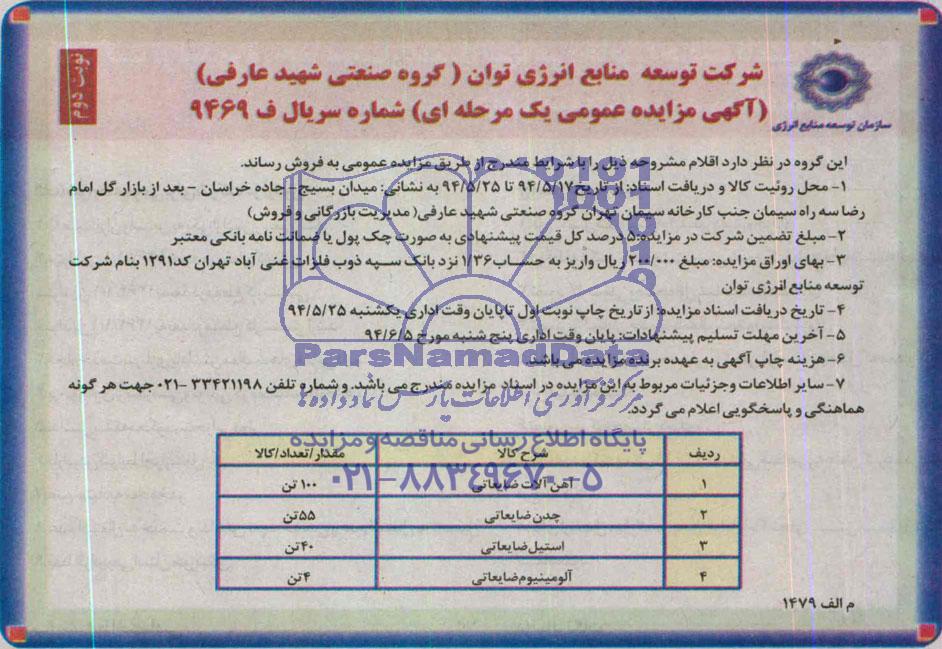 نوبت دوم
شرکت توسعه منابع انرژی توان ( گروه صنعتی شهید عارفی)
(آگهی مزایده عمومی یک مرحله ای) شماره سریال ف ۹۴۶۹
سازمان توسعه منابع انرژی
این گروه در نظر دارد اقلام مشروحه ذیل را با شرایط مندرج از طریق مزایده عمومی به فروش رساند.
۱- محل روئیت کالا و دریافت اسناد: از تاریخ ۹۴/۵/۱۷ تا ۹۴/۵/۲۵ به نشانی: میدان بسیج- جاده خراسان - بعد از بازار گل امام
رضا سه راه سیمان جنب کارخانه سیمان تهران گروه صنعتی شهید عارفی( مدیریت بازرگانی و فروش)
۲- مبلغ تضمین شرکت در مزایده:۵ درصد کل قیمت پیشنهادی به صورت چک پول یا ضمانت نامه بانکی معتبر
۳- بهای اوراق مزایده: مبلغ ۲۰۰/۰۰۰ ریال واریز به حساب ۱/۳۶ نزد بانک سپه ذوب فلزات غنی آباد تهران کد ۱۲۹۱ بنام شرکت
توسعه منابع انرژی توان
۴- تاریخ دریافت اسناد مزایده: از تاریخ چاپ نوبت اول تا پایان وقت اداری یکشنبه ۹۴/۵/۲۵
۵- آخرین مهلت تسلیم پیشنهادات: پایان وقت اداری پنج شنبه مورخ ۹۴/۶/۵
۶- هزینه چاپ آگهی به عهده برنده مزایده می باشد.
۷- سایر اطلاعات وجزئیات مربوط به این مزایده در اسناد مزایده مندرج می باشد. و شماره تلفن ۳۳۴۲۱۱۹۸ -۰۲۱ جهت هر گونه
هماهنگی و پاسخگویی اعلام می گردد.
ParsNamadData
مرکز فرآوری اطلاعات پارس نماد داده ها
پایگاه اطلاع رسانی مناقصه و مزایده
۰۲۱-۸۸۳۴۹۶۷۰-۵
ردیف شرح کالا مقدار/تعداد/کالا
۱ آهن آلات ضایعاتی ۱۰۰ تن
۲ چدن ضایعاتی ۵۵ تن
۳ استیل ضایعاتی ۴۰ تن
۴ آلومینیوم ضایعاتی ۴ تن
م الف ۱۴۷۹